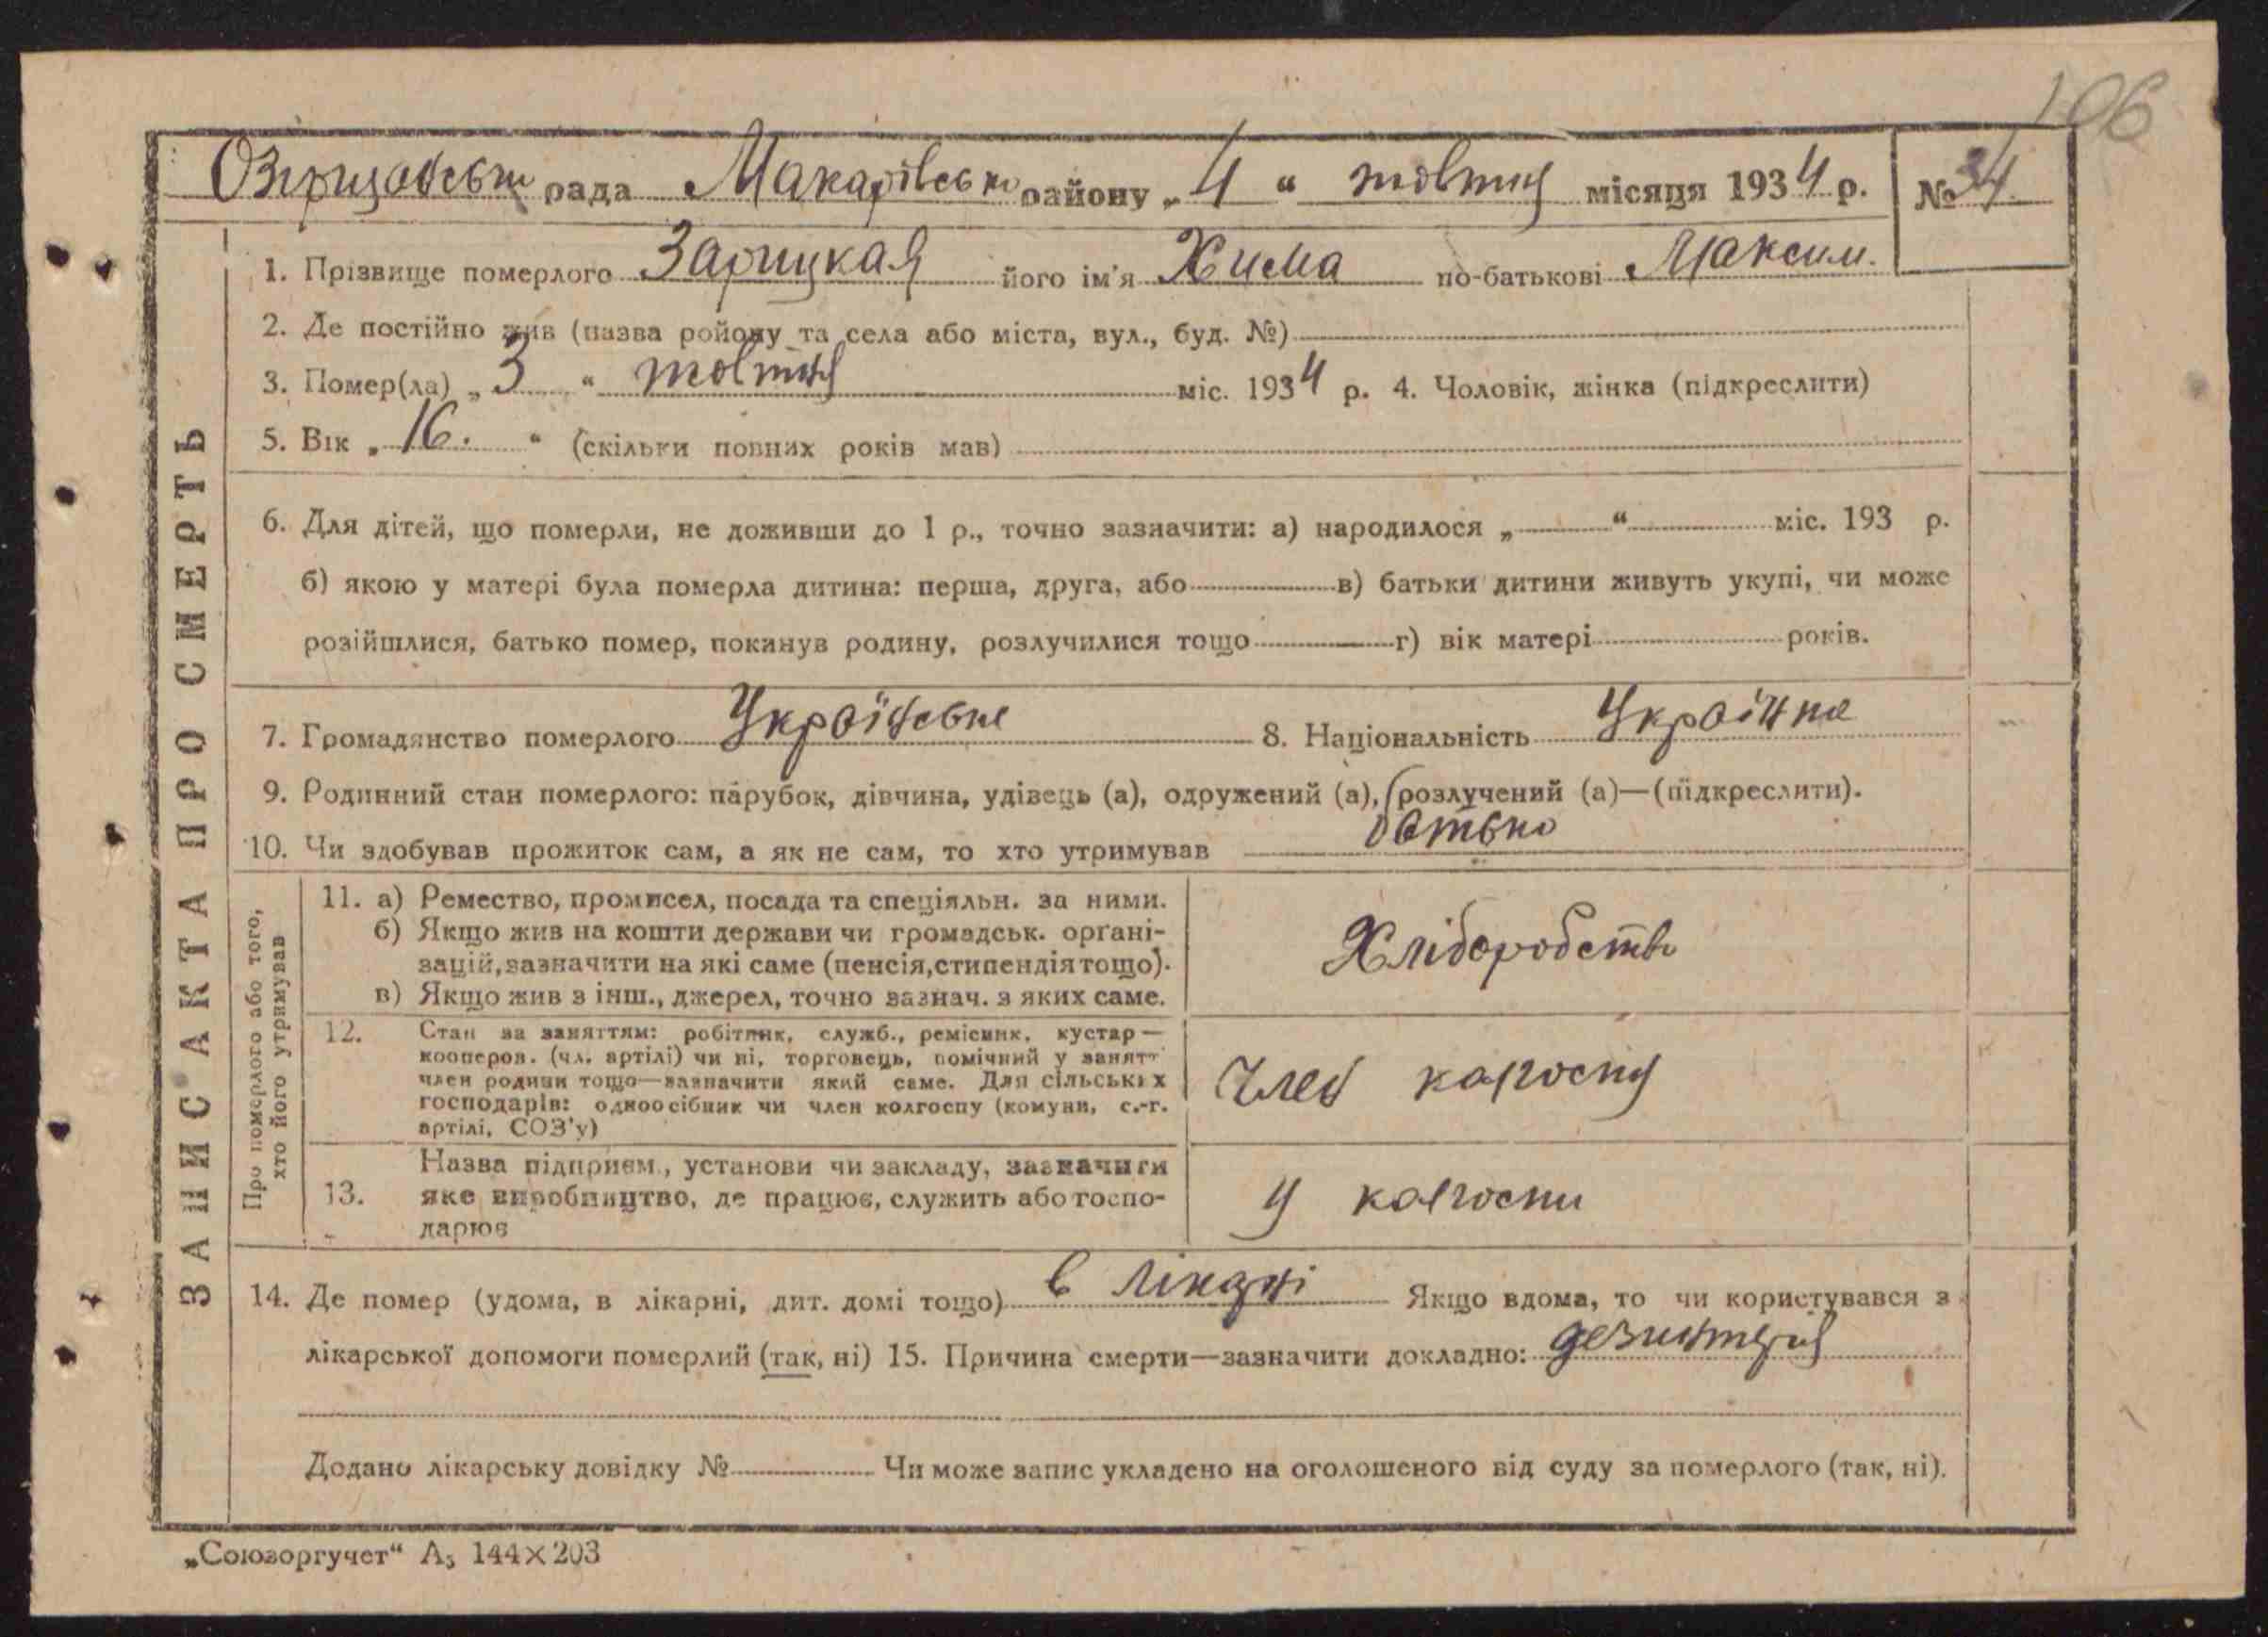 106
Озерщавськ рада Макарівськ району „4“ жовтня місяця 1934 р. № 34.
1. Прізвище померлого Зарицкая його ім'я Хима по-батькові Максим.
2. Де постійно жив (назва ройону та села або міста, вул., буд. №)
3. Помер(ла) „3“ жовтня міс. 1934 р. 4. Чоловік, жінка (підкреслити)
5. Вік „16.“ (скільки повних років мав)
6. Для дітей, що померли, не доживши до 1 р., точно зазначити: а) народилося „ “ міс. 193 р.
б) якою у матері була померла дитина: перша, друга, або в) батьки дитини живуть укупі, чи може
розійшлися, батько помер, покинув родину, розлучилися тощо г) вік матері років.
7. Громадянство померлого Українське 8. Національність Українка
9. Родинний стан померлого: парубок, дівчина, удівець (а), одружений (а), розлучений (а)—(підкреслити).
10. Чи здобував прожиток сам, а як не сам, то хто утримував батько
11. а) Ремество, промисел, посада та спеціяльн. за ними.
б) Якщо жив на кошти держави чи громадськ. орґані-
зацій, зазначити на які саме (пенсія, стипендія тощо).
в) Якщо жив з інш., джерел, точно зазнач. з яких саме.
Хліборобство
12. Стан за заняттям: робітник, служб., ремісник, кустар—
кооперов. (чл. артілі) чи ні, торговець, помічний у занятт
член родини тощо—зазначити який саме. Для сільських
господарів: одноосібник чи член колгоспу (комуни, с.-г.
артілі, СОЗ'у)
Член колгоспу
13. Назва підприєм., установи чи закладу, зазначити
яке виробництво, де працює, служить або госпо-
дарює
У колгоспи
14. Де помер (удома, в лікарні, дит. домі тощо) в лікарні Якщо вдома, то чи користувався з
лікарської допомоги померлий (так, ні) 15. Причина смерти—зазначити докладно: дезинтерія
Додано лікарську довідку № Чи може запис укладено на оголошеного від суду за померлого (так, ні).
„Союзоргучет“ А5 144×203
ЗАПИС АКТА ПРО СМЕРТЬ
Про померлого або того,
хто його утримував